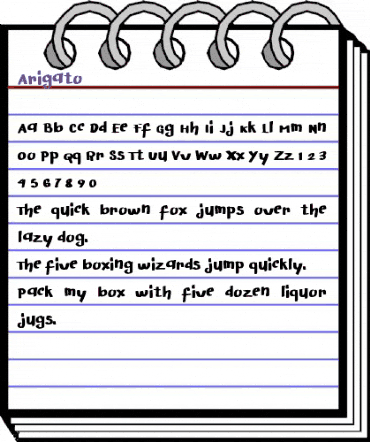 Arigato
Aa Bb Cc Dd Ee Ff Gg Hh Ii Jj Kk Ll Mm Nn
Oo Pp Qq Rr Ss Tt Uu Vv Ww Xx Yy Zz 1 2 3
4 5 6 7 8 9 0
The quick brown fox jumps over the
lazy dog.
The five boxing wizards jump quickly.
Pack my box with five dozen liquor
jugs.